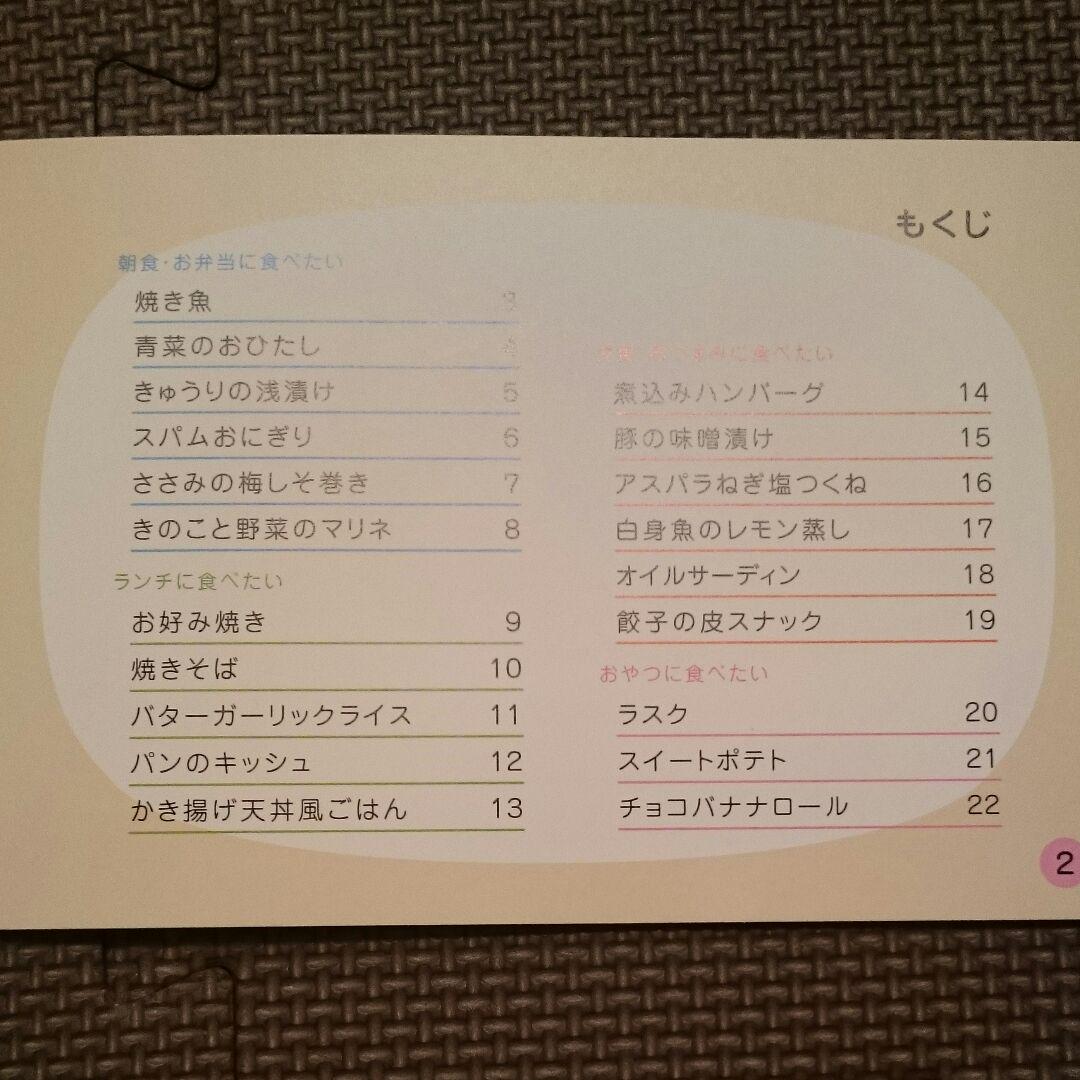 もくじ
朝食・お弁当に食べたい
焼き魚 3
青菜のおひたし 4
きゅうりの浅漬け 5
スパムおにぎり 6
ささみの梅しそ巻き 7
きのこと野菜のマリネ 8
ランチに食べたい
お好み焼き 9
焼きそば 10
バターガーリックライス 11
パンのキッシュ 12
かき揚げ天丼風ごはん 13
おつまみに食べたい
煮込みハンバーグ 14
豚の味噌漬け 15
アスパラねぎ塩つくね 16
白身魚のレモン蒸し 17
オイルサーディン 18
餃子の皮スナック 19
おやつに食べたい
ラスク 20
スイートポテト 21
チョコバナナロール 22
2